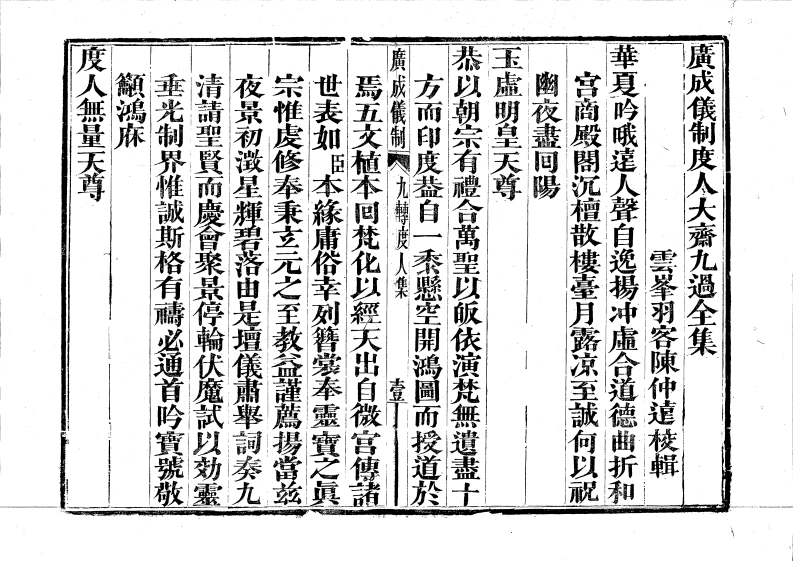 廣成儀制度人大齋九過全集
雲峯羽客陳仲遠校輯
華夏吟哦達人聲自逸揚冲虛合道德曲折和
宮商殿閣沉檀散樓臺月露凉至誠何以祝
幽夜盡回陽
玉虛明皇天尊
恭以朝宗有禮合萬聖以皈依演梵無遺盡十
方而印度葢自一黍懸空開鴻圖而授道於
廣成儀制 九轉度人集 壹
焉五文植本回梵化以經天出自微宮傳諸
世表如臣本緣庸俗幸列簪裳奉靈寶之眞
宗惟虔修奉秉玄元之至教益謹薦揚當兹
夜景初澂星輝碧落由是壇儀肅舉詞奏九
清請聖賢而慶會聚景停輪伏魔試以効靈
垂光制界惟誠斯格有禱必通首吟寶號敬
籲鴻庥
度人無量天尊